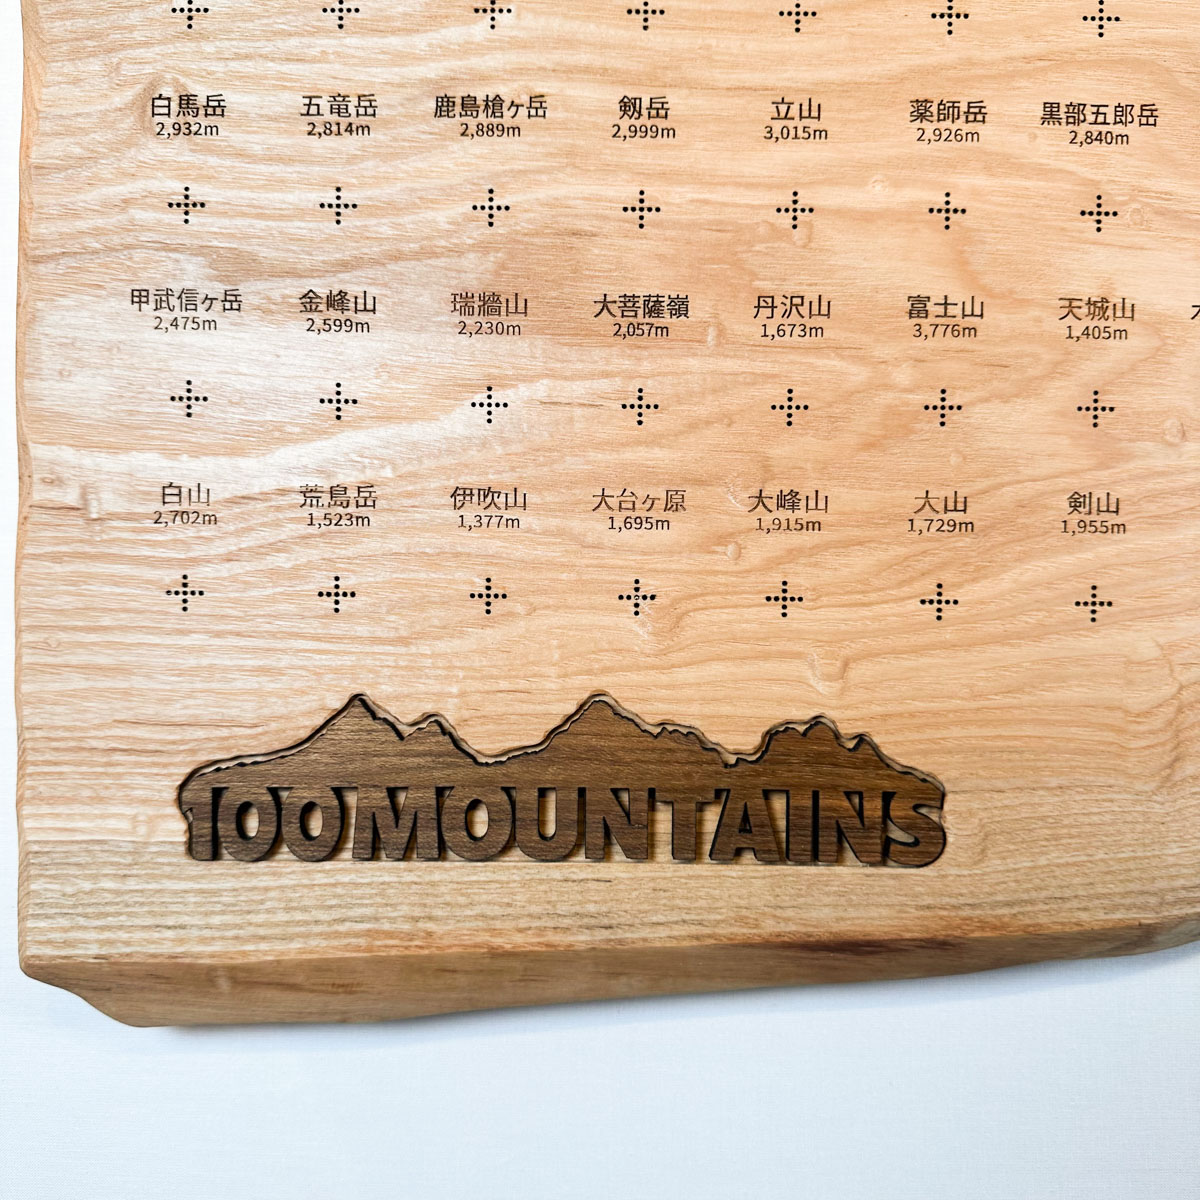 白馬岳 五竜岳 鹿島槍ヶ岳 剱岳 立山 薬師岳 黒部五郎岳
2,932m 2,814m 2,889m 2,999m 3,015m 2,926m 2,840m
甲武信ヶ岳 金峰山 瑞牆山 大菩薩嶺 丹沢山 富士山 天城山
2,475m 2,599m 2,230m 2,057m 1,673m 3,776m 1,405m
白山 荒島岳 伊吹山 大台ヶ原 大峰山 大山 剣山
2,702m 1,523m 1,377m 1,695m 1,915m 1,729m 1,955m
100MOUNTAINS